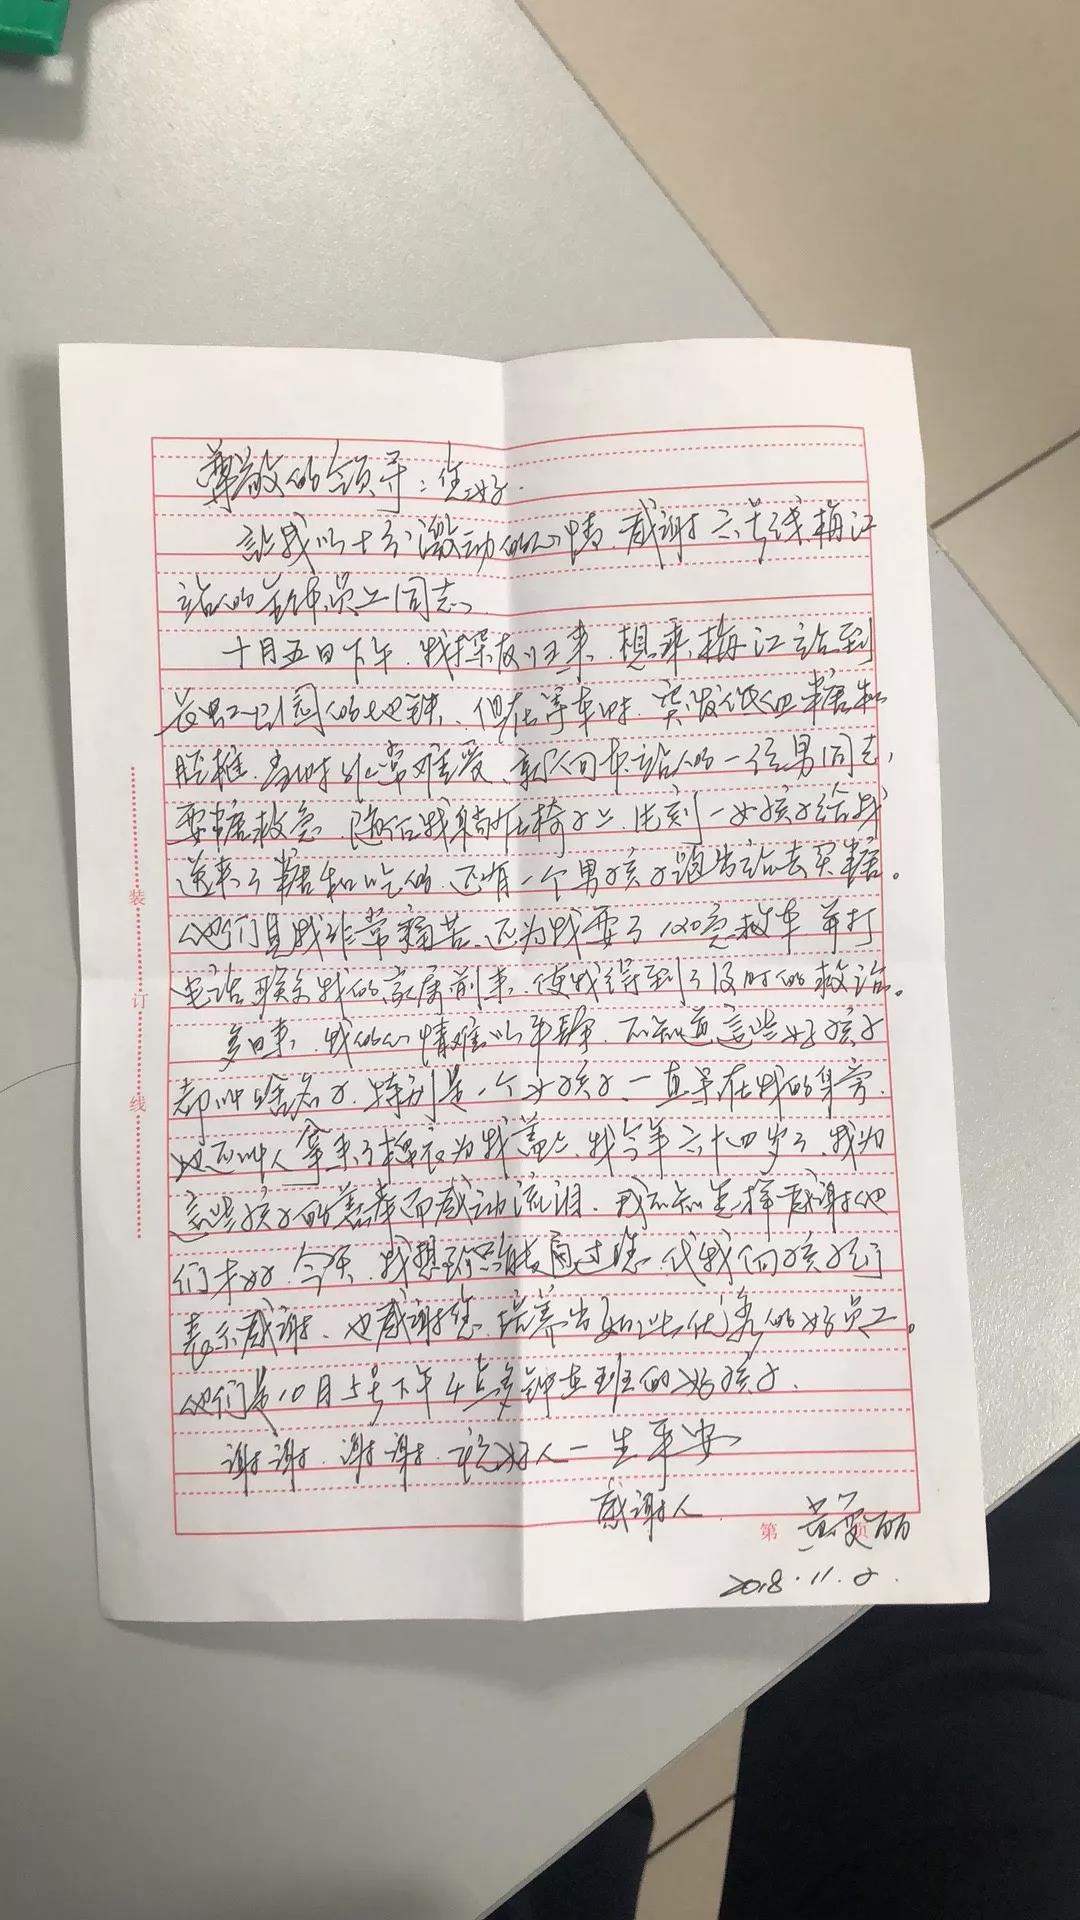 尊敬的领导：您好.
让我以十分激动的心情,感谢六号线梅江
站的全体员工同志.
十月五日下午.我探友归来.想来梅江站到
长虹公园的地铁、但在等车时.突发低血糖和
颈椎.当时非常难受、就向本站的一位男同志,
要糖救急.随后我躺在椅子上.此刻一女孩子给我
送来了糖和吃的.还有一个男孩子跑出站去买糖。
他们见我非常痛苦.还为我要了120急救车并打
电话联系我的家属前来.使我得到了及时的救治。
多日来.我的心情难以平静.不知道这些好孩子
都叫啥名子.特别是一个女孩子、一直守在我的身旁.
她还叫人拿来了棉衣为我盖上.我今年六十四岁了.我为
这些孩子的善举而感动流泪.我不知怎样感谢他
们才好.今天.我想能通过您.代我向孩子们
表示感谢、也感谢您.培养出如此优秀的好员工。
他们是10月5号下午4点多钟在班的好孩子.
谢谢.谢谢.祝好人一生平安
感谢人 黄爱丽
第 页
2018.11.2.
装
订
线